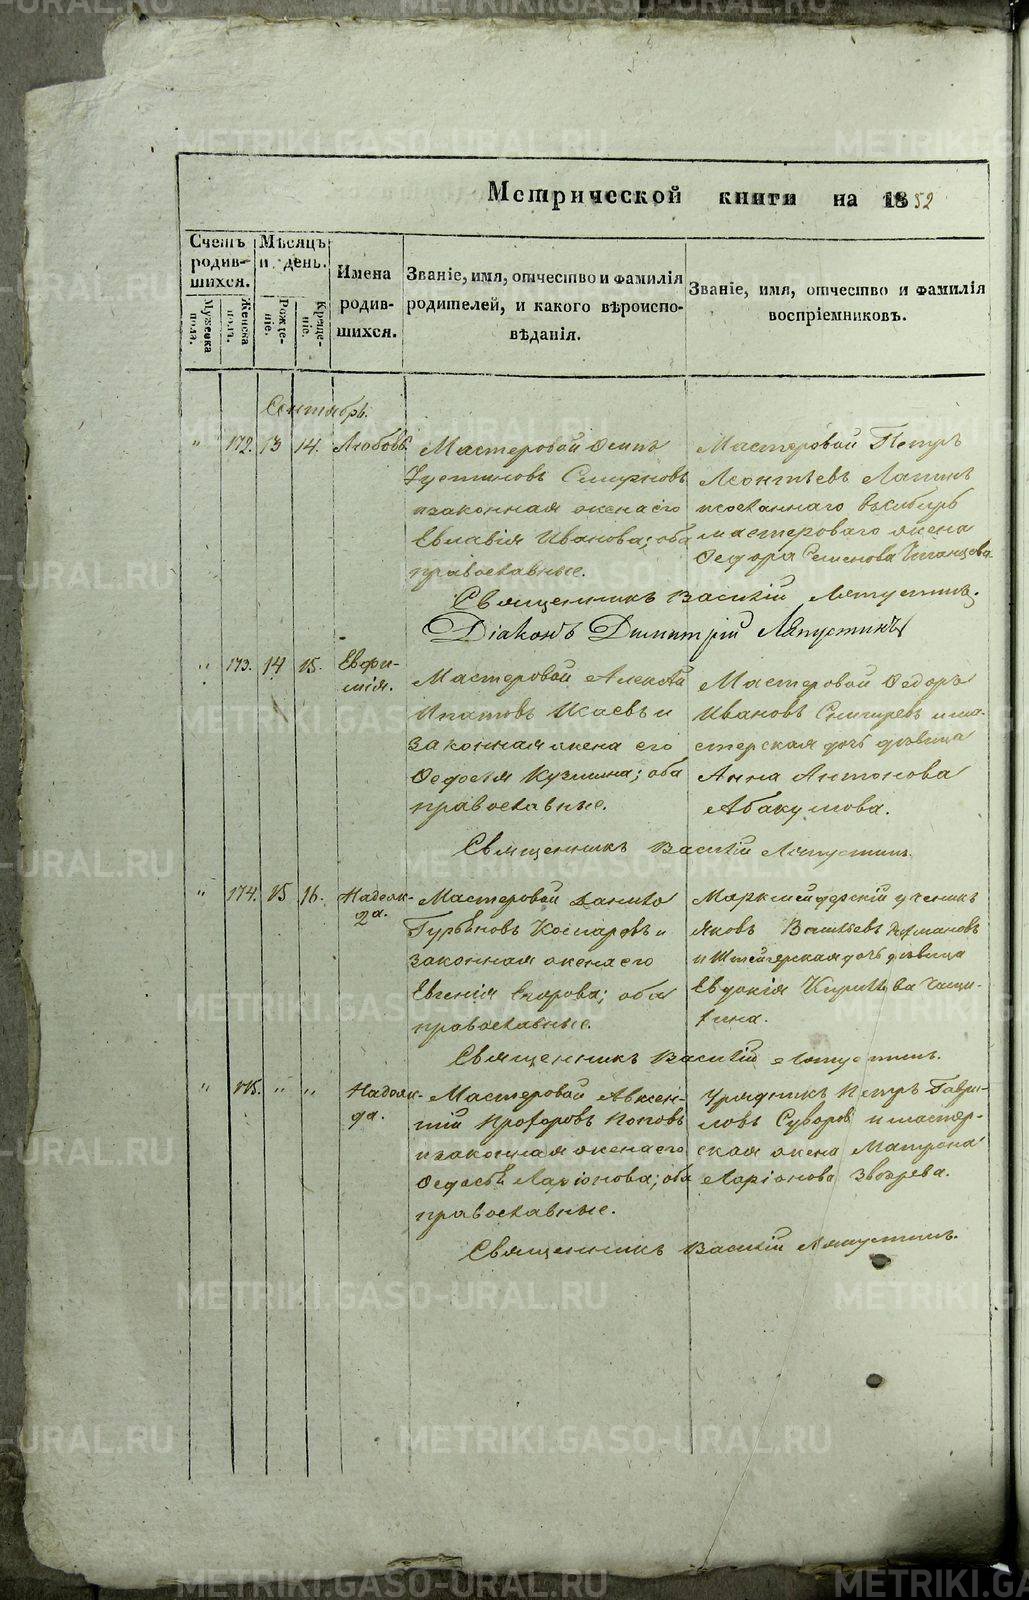 Метрической книги на 1852
Счетъ родившихся.
Мѣсяцъ и день.
Имена родившихся.
Званіе, имя, отчество и фамилія родителей, и какого вѣроисповѣданія.
Званіе, имя, отчество и фамилія воспріемниковъ.
Мужеска пола.
Женска пола.
Рожденіе.
Крещеніе.
Сентябрь.
" 172. 13 14. Любовь.
Мастеровой Осипъ
Устиновъ Смирновъ
и законная жена его
Евлавія Иванова; оба
православные.
Мастеровой Петръ
Леонтьевъ Лапинъ
мастероваго жена
Ѳедора Семенова
Священникъ Василій Ляпустинъ.
Діаконъ Димитрій Ляпустинъ
" 173. 14 15. Евфи-
мія.
Мастеровой Алексѣй
Ипатовъ Исаевъ и
законная жена его
Ѳедосья Кузмина; оба
православные.
Мастеровой Ѳедоръ
Ивановъ Снигиревъ и ма-
стерская дочь дѣвица
Анна Антонова
Абакумова.
Священникъ Василій Ляпустинъ.
" 174. 15 16. Надеж-
да.
Мастеровой Данило
Комаровъ и
законная жена его
Евгенія Егорова; оба
православные.
Маркшейдерскій ученикъ
Яковъ Васильевъ
и Штейгерская дочь дѣвица
Евдокія Кирилова Чащи-
хина.
Священникъ Василій Ляпустинъ.
" 175. " " Надеж-
да.
Мастеровой Авксен-
тій Прохоровъ Поповъ
и законная жена его
Ѳедосья Ларіонова; оба
православные.
Урядникъ Петръ Гаври-
ловъ Суворовъ и мастер-
ская жена Матрена
Ларіонова Звѣрева.
Священникъ Василій Ляпустинъ.
METRIKI.GASO-URAL.RU